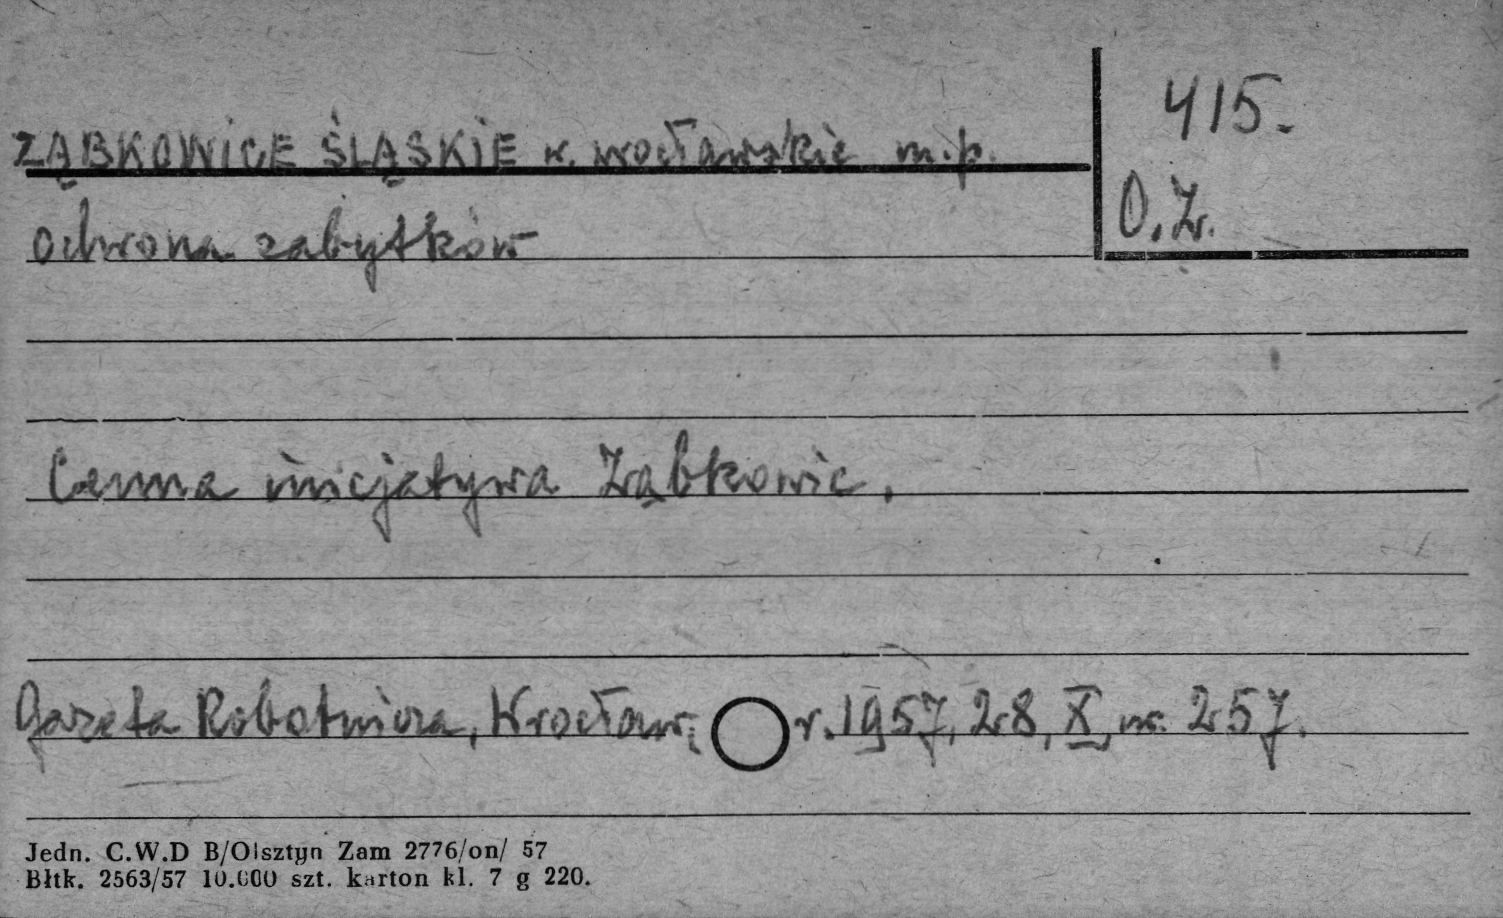 ZĄBKOWICE ŚLĄSKIE w. wrocławskie m.p.
415.
O.Z.
ochrona zabytków
Cenna inicjatywa Ząbkowic.
Gazeta Robotnicza, Wrocław; r. 1957, 28, X, nr. 257.
Jedn. C.W.D B/Olsztyn Zam 2776/on/ 57
Błtk. 2563/57 10.000 szt. karton kl. 7 g 220.